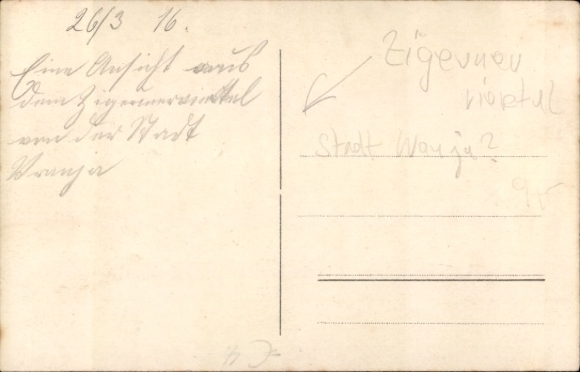 26/3 16.
Eine Ansicht aus
dem Zigeunerviertel
von der Stadt
Vranja
Zigeuner
viertel
Stadt Wanja?